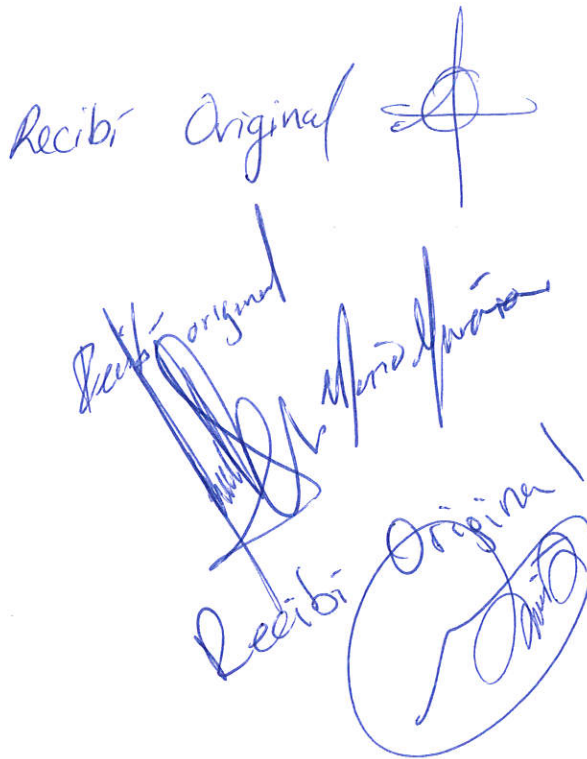 Recibí Original
Recibí original
Recibí Original